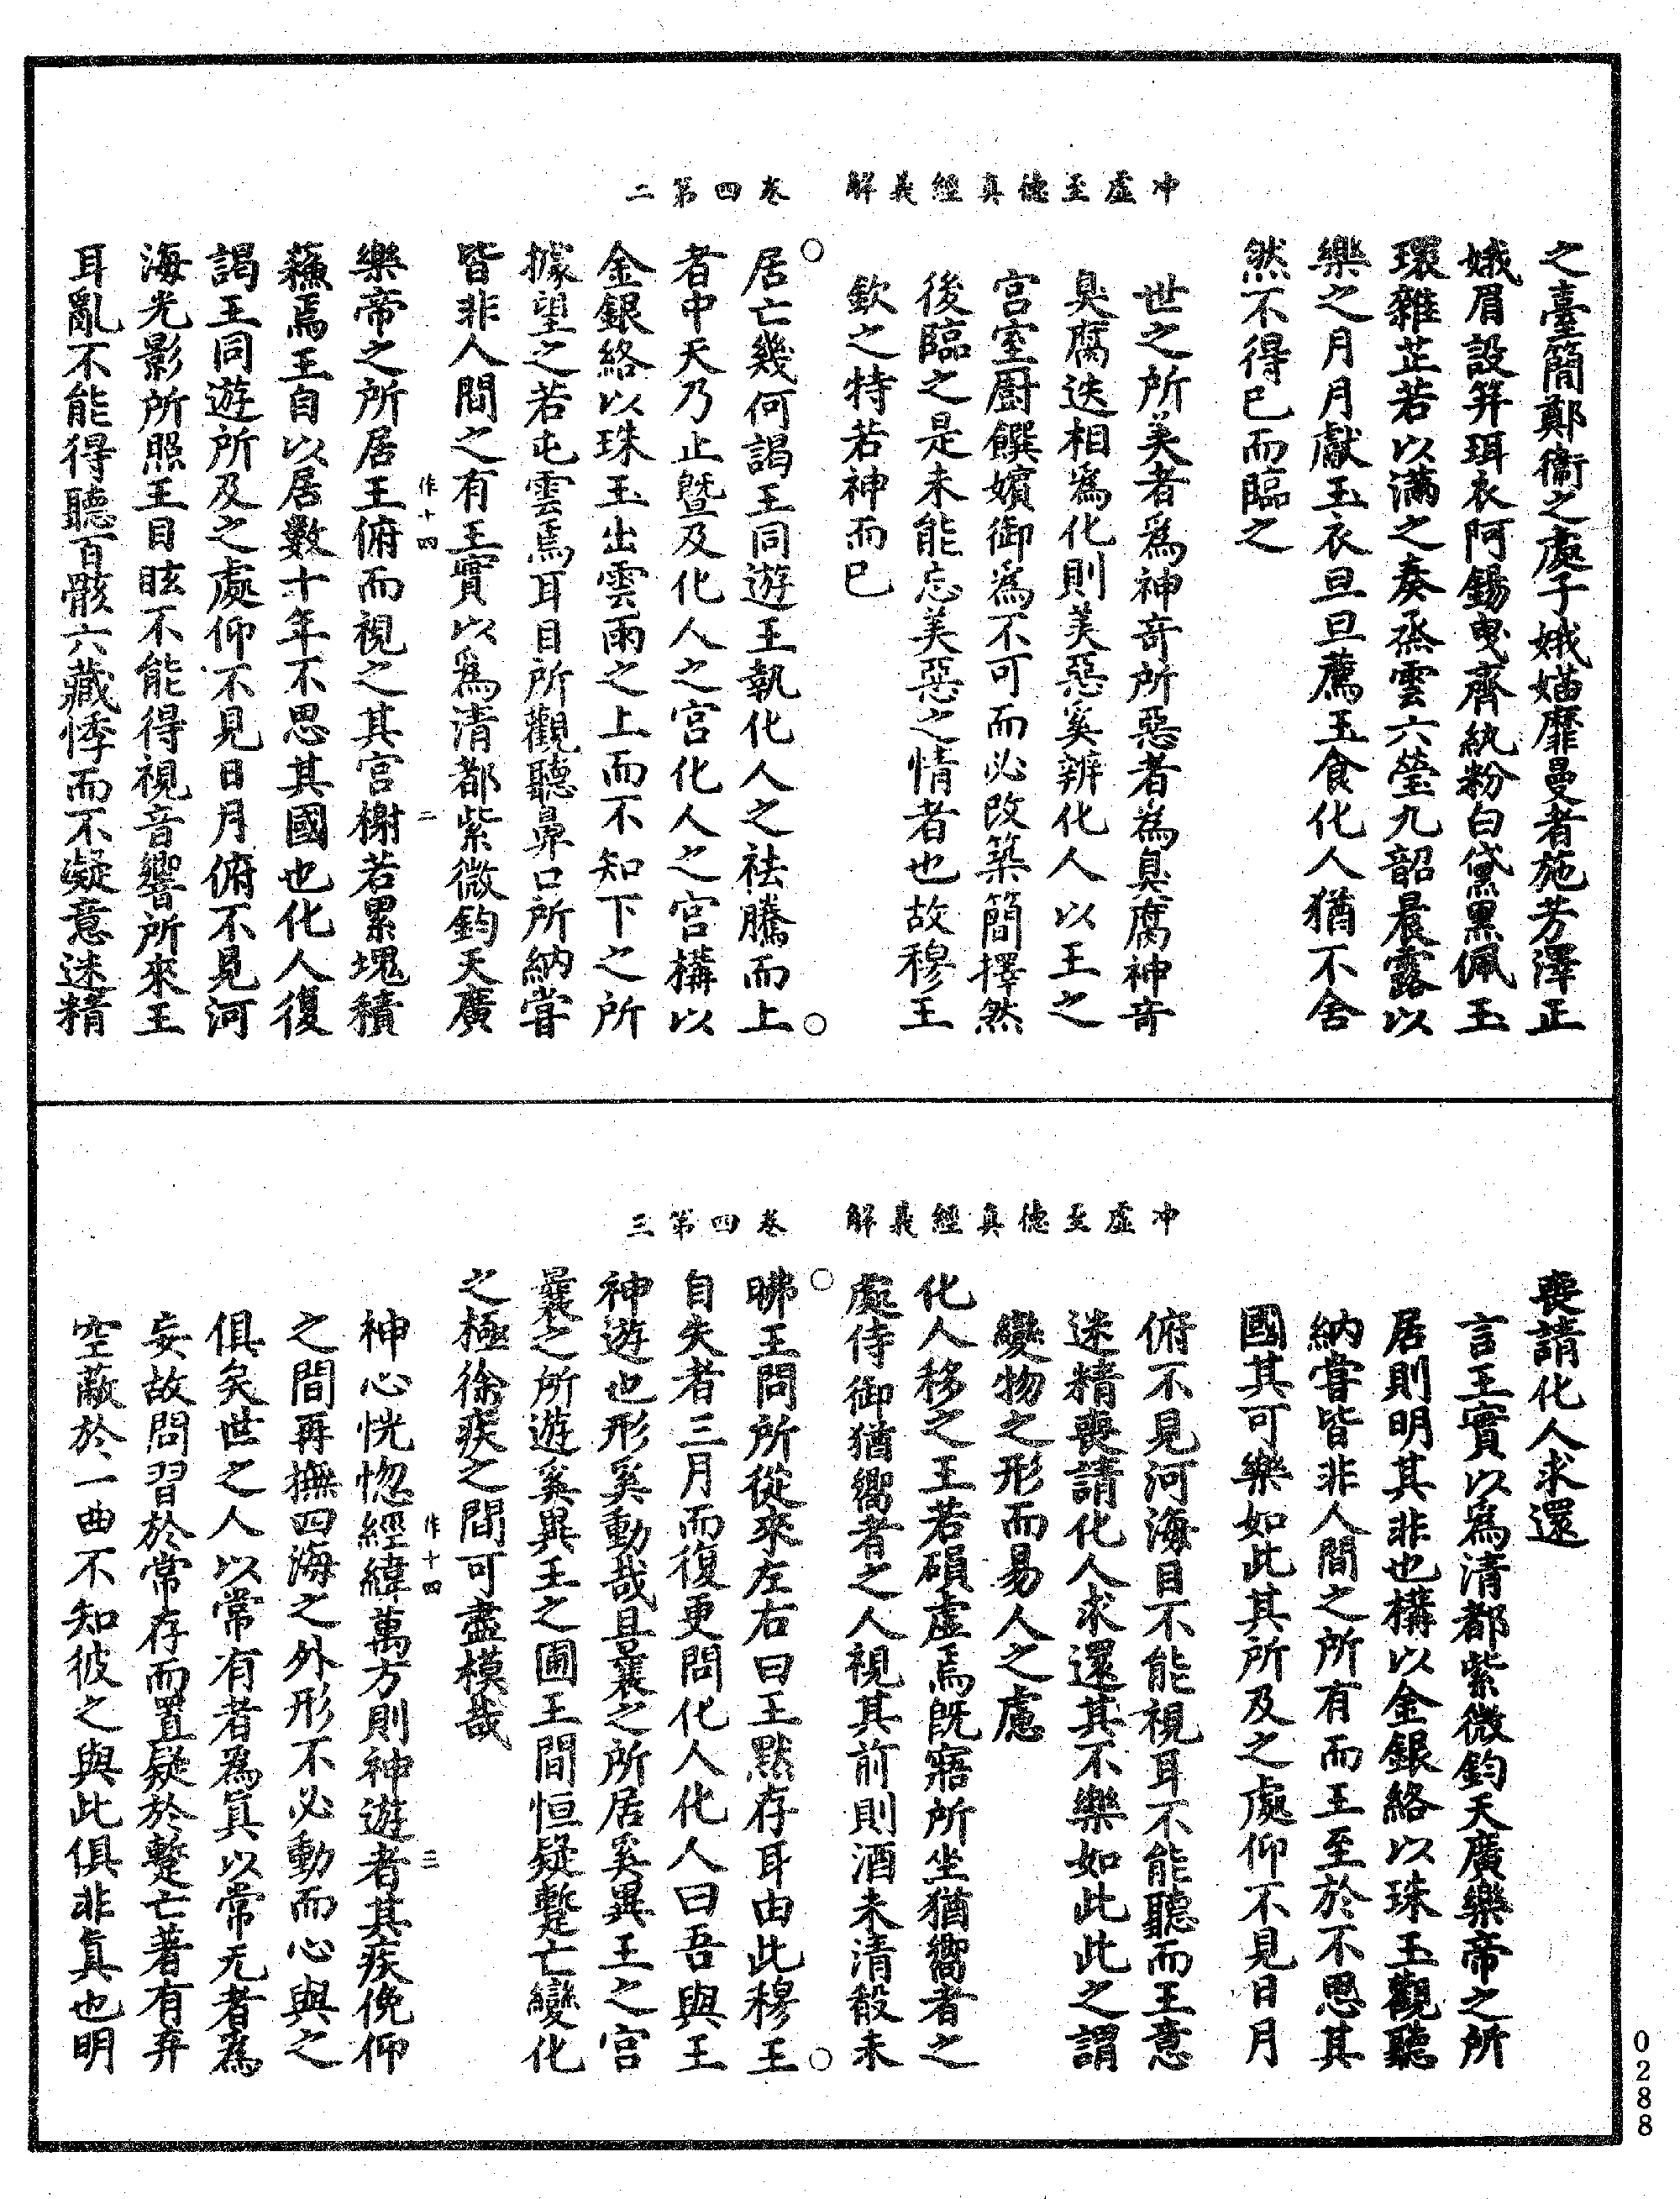 冲虛至德真經義解　卷四第二
之臺簡鄭衞之處子娥媌靡曼者施芳澤正
娥眉設笄珥衣阿錫曳齊紈粉白黛黑佩玉
環雜芷若以滿之奏承雲六瑩九韶晨露以
樂之月月獻玉衣旦旦薦玉食化人猶不舍
然不得已而臨之
世之所美者爲神奇所惡者為臭腐神奇
臭腐迭相爲化則美惡奚辨化人以王之
宫室厨饌嬪御爲不可而必改築簡擇然
後臨之是未能忘美惡之情者也故穆王
欽之特若神而已
○居亡幾何謁王同遊王執化人之袪騰而上○
者中天乃止曁及化人之宫化人之宫構以
金銀絡以珠玉出雲雨之上而不知下之所
據望之若屯雲焉耳目所觀聽鼻口所納嘗
皆非人間之有王實以爲清都紫微鈞天廣
作十四　二
樂帝之所居王俯而視之其宫榭若累塊積
蘓焉王自以居數十年不思其國也化人復
謁王同遊所及之處仰不見日月俯不見河
海光影所照王目眩不能得視音響所來王
耳亂不能得聽百骸六藏悸而不凝意迷精
冲虛至德真經義解　卷四第三
喪請化人求還
言王實以爲清都紫微鈞天廣樂帝之所
居則明其非也構以金銀絡以珠玉觀聽
納嘗皆非人間之所有而王至於不思其
國其可樂如此其所及之處仰不見日月
俯不見河海目不能視耳不能聽而王意
迷精喪請化人求還其不樂如此此之謂
變物之形而易人之慮
化人移之王若磒虛焉旣寤所坐猶嚮者之
處侍御猶嚮者之人視其前則酒未清殽未
○昲王問所從來左右曰王默存耳由此穆王○
自失者三月而復更問化人化人曰吾與王
神遊也形奚動哉且曩之所居奚異王之宫
曩之所遊奚異王之圃王間恒疑蹔亡變化
之極徐疾之間可盡模哉
作十四　三
神心恍惚經緯萬方則神遊者其疾俛仰
之間再撫四海之外形不必動而心與之
俱矣世之人以常有者為真以常无者為
妄故問習於常存而置疑於蹔亡著有弃
空蔽於一曲不知彼之與此俱非真也明
0288